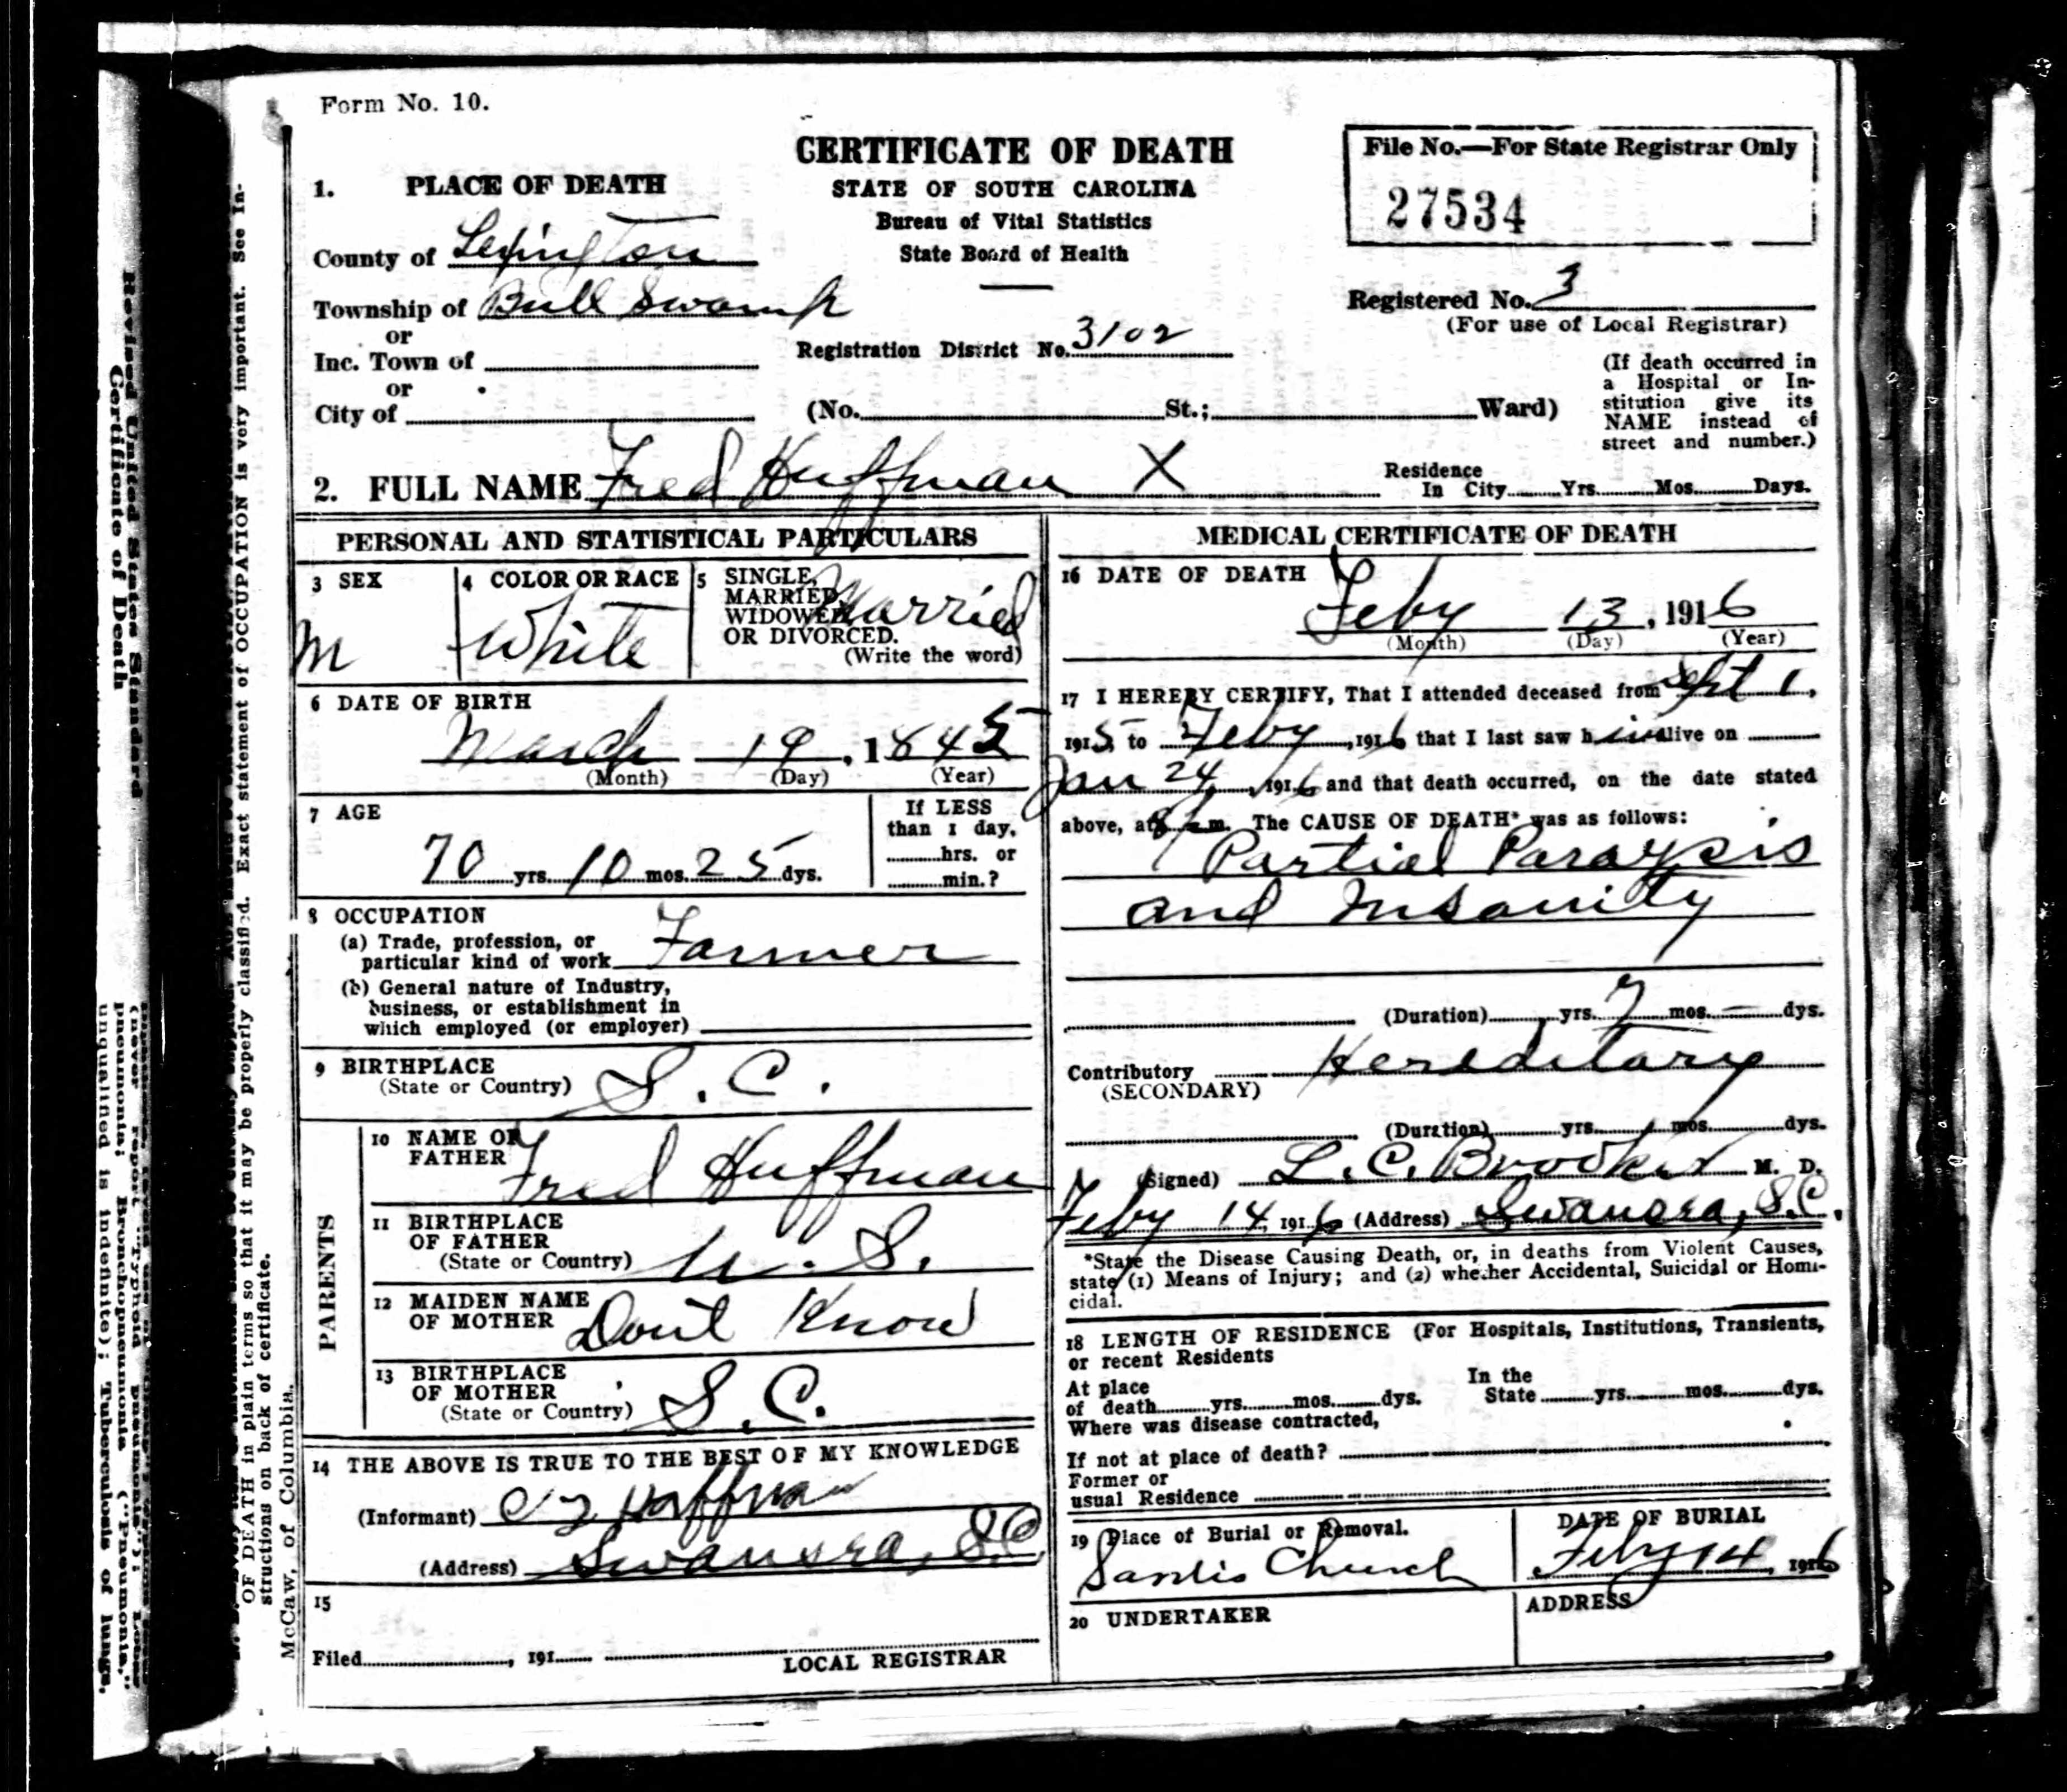 Form No. 10.
CERTIFICATE OF DEATH
STATE OF SOUTH CAROLINA
Bureau of Vital Statistics
State Board of Health
File No.—For State Registrar Only
27534
1. PLACE OF DEATH
County of Lexington
Township of Bull Swamp
or
Inc. Town of
or
City of
Registration District No. 3102
Registered No. 3
(For use of Local Registrar)
(No. St.; Ward)
(If death occurred in
a Hospital or In-
stitution give its
NAME instead of
street and number.)
2. FULL NAME Fred Huffman X
Residence
In City Yrs. Mos. Days.
PERSONAL AND STATISTICAL PARTICULARS
3 SEX
M
4 COLOR OR RACE
White
5 SINGLE,
MARRIED,
WIDOWED
OR DIVORCED.
(Write the word)
Married
6 DATE OF BIRTH
March 19, 1845
(Month) (Day) (Year)
7 AGE
70 yrs. 10 mos. 25 dys.
If LESS
than 1 day,
hrs. or
min.?
8 OCCUPATION
(a) Trade, profession, or
particular kind of work Farmer
(b) General nature of Industry,
business, or establishment in
which employed (or employer)
9 BIRTHPLACE
(State or Country) S.C.
PARENTS
10 NAME OF
FATHER Fred Huffman
11 BIRTHPLACE
OF FATHER
(State or Country) U.S.
12 MAIDEN NAME
OF MOTHER Don't Know
13 BIRTHPLACE
OF MOTHER
(State or Country) S.C.
14 THE ABOVE IS TRUE TO THE BEST OF MY KNOWLEDGE
(Informant) Huffman
(Address) Swansea, S.C.
15
Filed , 191
LOCAL REGISTRAR
MEDICAL CERTIFICATE OF DEATH
16 DATE OF DEATH
Feby 13, 1916
(Month) (Day) (Year)
17 I HEREBY CERTIFY, That I attended deceased from Sept 1,
1915, to Feby, 1916 that I last saw him alive on
Jan 24, 1916 and that death occurred, on the date stated
above, at 8 m. The CAUSE OF DEATH* was as follows:
Partial Paraysis
and Insanity
(Duration) yrs. 7 mos. — dys.
Contributory Hereditary
(SECONDARY)
(Duration) yrs. mos. dys.
(Signed) L.C. Brooker M. D.
Feby 14, 1916 (Address) Swansea, S.C.
*State the Disease Causing Death, or, in deaths from Violent Causes,
state (1) Means of Injury; and (2) whether Accidental, Suicidal or Homi-
cidal.
18 LENGTH OF RESIDENCE (For Hospitals, Institutions, Transients,
or recent Residents
At place
of death yrs. mos. dys.
In the
State yrs. mos. dys.
Where was disease contracted,
If not at place of death?
Former or
usual Residence
19 Place of Burial or Removal.
Sardis Church
DATE OF BURIAL
Feby 14, 1916
20 UNDERTAKER
ADDRESS
Exact statement of OCCUPATION is very important. See In-
OF DEATH in plain terms so that it may be properly classified.
structions on back of certificate.
McCaw, of Columbia.
Revised United States Standard
Certificate of Death
unqualified is indefinite); Tuberculosis of lungs,